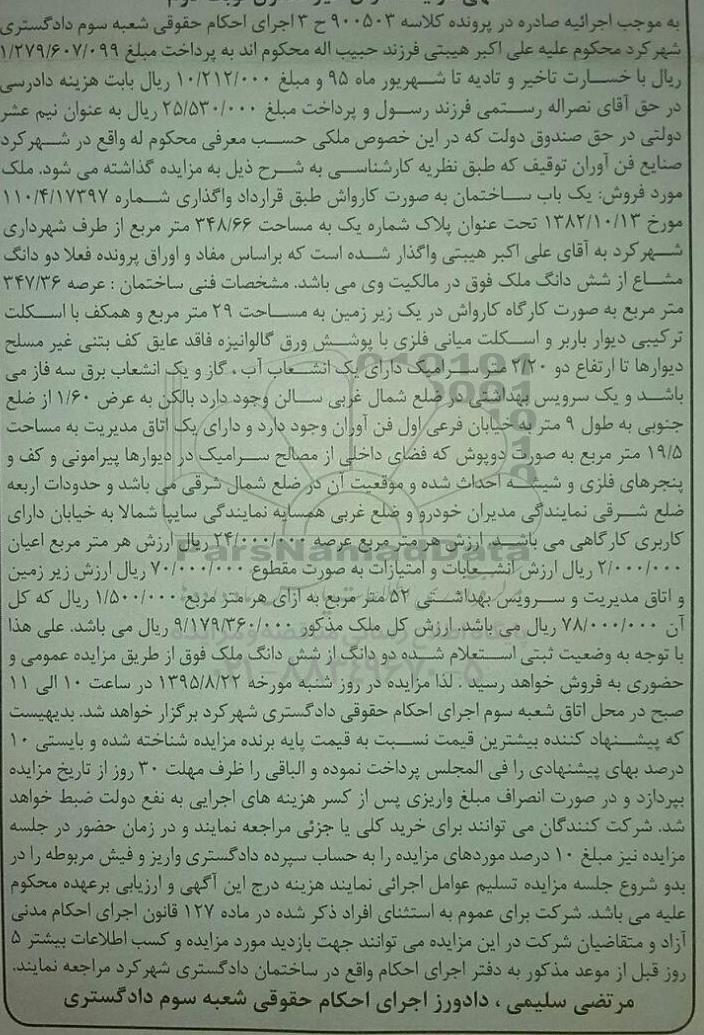 به موجب اجرائیه صادره در پرونده کلاسه ۹۰۰۵۰۳ ح ۳ اجرای احکام حقوقی شعبه سوم دادگستری
شهرکرد محکوم علیه علی اکبر هیبتی فرزند حبیب اله محکوم اند به پرداخت مبلغ ۱/۲۷۹/۶۰۷/۰۹۹
ریال با خسارت تاخیر و تادیه تا شهریور ماه ۹۵ و مبلغ ۱۰/۲۱۲/۰۰۰ ریال بابت هزینه دادرسی
در حق آقای نصراله رستمی فرزند رسول و پرداخت مبلغ ۲۵/۵۳۰/۰۰۰ ریال به عنوان نیم عشر
دولتی در حق صندوق دولت که در این خصوص ملکی حسب معرفی محکوم له واقع در شهرکرد
صنایع فن آوران توقیف که طبق نظریه کارشناسی به شرح ذیل به مزایده گذاشته می شود. ملک
مورد فروش: یک باب ساختمان به صورت کارواش طبق قرارداد واگذاری شماره ۱۱۰/۴/۱۷۳۹۷
مورخ ۱۳۸۲/۱۰/۱۳ تحت عنوان پلاک شماره یک به مساحت ۳۴۸/۶۶ متر مربع از طرف شهرداری
شهرکرد به آقای علی اکبر هیبتی واگذار شده است که براساس مفاد و اوراق پرونده فعلا دو دانگ
مشاع از شش دانگ ملک فوق در مالکیت وی می باشد. مشخصات فنی ساختمان : عرصه ۳۴۷/۳۶
متر مربع به صورت کارگاه کارواش در یک زیر زمین به مساحت ۲۹ متر مربع و همکف با اسکلت
ترکیبی دیوار باربر و اسکلت میانی فلزی با پوشش ورق گالوانیزه فاقد عایق کف بتنی غیر مسلح
دیوارها تا ارتفاع دو ۲/۲۰ متر سرامیک دارای یک انشعاب آب ، گاز و یک انشعاب برق سه فاز می
باشد و یک سرویس بهداشتی در ضلع شمال غربی سالن وجود دارد بالکن به عرض ۱/۶۰ از ضلع
جنوبی به طول ۹ متر به خیابان فرعی اول فن آوران وجود دارد و دارای یک اتاق مدیریت به مساحت
۱۹/۵ متر مربع به صورت دوپوش که فضای داخلی از مصالح سرامیک در دیوارها پیرامونی و کف و
پنجرهای فلزی و شیشه احداث شده و موقعیت آن در ضلع شمال شرقی می باشد و حدودات اربعه
ضلع شرقی نمایندگی مدیران خودرو و ضلع غربی همسایه نمایندگی سایپا شمالا به خیابان دارای
کاربری کارگاهی می باشد. ارزش هر متر مربع عرصه ۲۴/۰۰۰/۰۰۰ ریال ارزش هر متر مربع اعیان
۲/۰۰۰/۰۰۰ ریال ارزش انشعابات و امتیازات به صورت مقطوع ۷۰/۰۰۰/۰۰۰ ریال ارزش زیر زمین
و اتاق مدیریت و سرویس بهداشتی ۵۲ متر مربع به ازای هر متر مربع ۱/۵۰۰/۰۰۰ ریال که کل
آن ۷۸/۰۰۰/۰۰۰ ریال می باشد. ارزش کل ملک مذکور ۹/۱۷۹/۳۶۰/۰۰۰ ریال می باشد. علی هذا
با توجه به وضعیت ثبتی استعلام شده دو دانگ از شش دانگ ملک فوق از طریق مزایده عمومی و
حضوری به فروش خواهد رسید . لذا مزایده در روز شنبه مورخه ۱۳۹۵/۸/۲۲ در ساعت ۱۰ الی ۱۱
صبح در محل اتاق شعبه سوم اجرای احکام حقوقی دادگستری شهرکرد برگزار خواهد شد. بدیهیست
که پیشنهاد کننده بیشترین قیمت نسبت به قیمت پایه برنده مزایده شناخته شده و بایستی ۱۰
درصد بهای پیشنهادی را فی المجلس پرداخت نموده و الباقی را ظرف مهلت ۳۰ روز از تاریخ مزایده
بپردازد و در صورت انصراف مبلغ واریزی پس از کسر هزینه های اجرایی به نفع دولت ضبط خواهد
شد. شرکت کنندگان می توانند برای خرید کلی یا جزئی مراجعه نمایند و در زمان حضور در جلسه
مزایده نیز مبلغ ۱۰ درصد موردهای مزایده را به حساب سپرده دادگستری واریز و فیش مربوطه را در
بدو شروع جلسه مزایده تسلیم عوامل اجرائی نمایند هزینه درج این آگهی و ارزیابی برعهده محکوم
علیه می باشد. شرکت برای عموم به استثنای افراد ذکر شده در ماده ۱۲۷ قانون اجرای احکام مدنی
آزاد و متقاضیان شرکت در این مزایده می توانند جهت بازدید مورد مزایده و کسب اطلاعات بیشتر ۵
روز قبل از موعد مذکور به دفتر اجرای احکام واقع در ساختمان دادگستری شهرکرد مراجعه نمایند.
مرتضی سلیمی ، دادورز اجرای احکام حقوقی شعبه سوم دادگستری
ParsNamadData